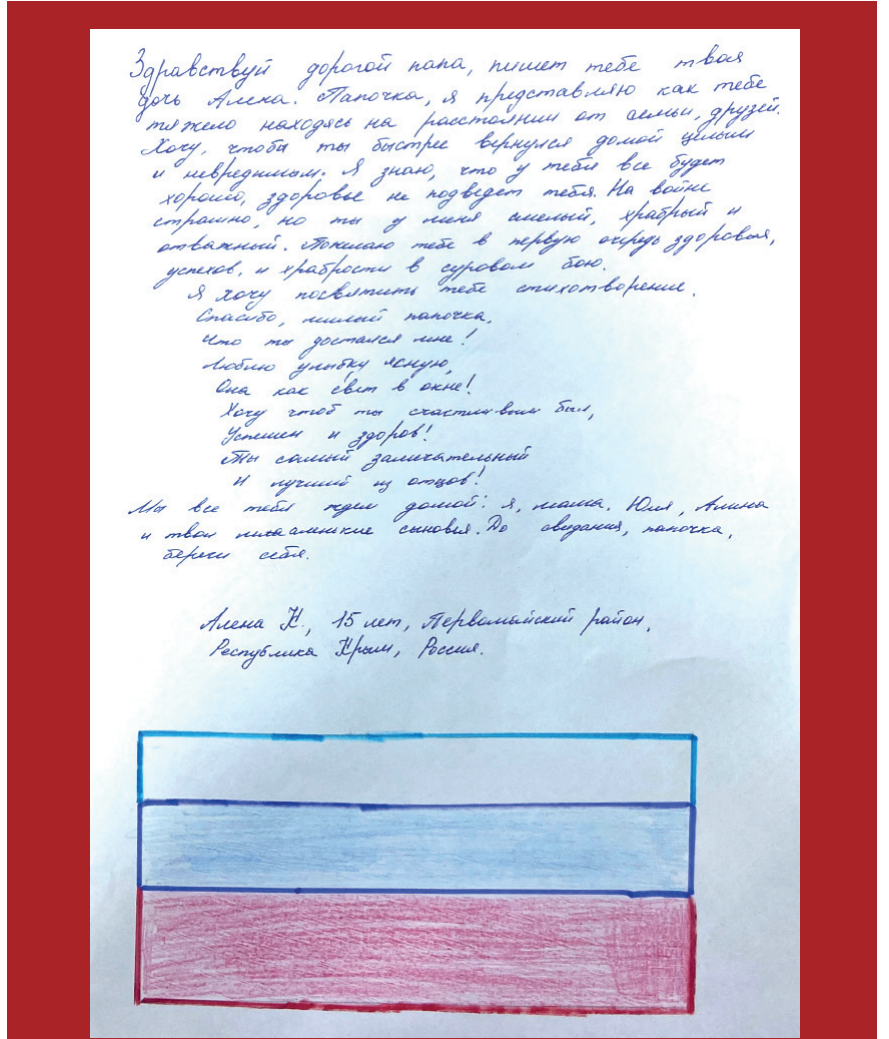 Здравствуй дорогой папа, пишет тебе твоя
дочь Алена. Папочка, я представляю как тебе
тяжело находясь на расстоянии от семьи, друзей.
Хочу, чтобы ты быстрее вернулся домой целым
и невредимым. Я знаю, что у тебя все будет
хорошо, здоровье не подведет тебя. На войне
страшно, но ты у меня смелый, храбрый и
отважный. Пожелаю тебе в первую очередь здоровья,
успехов, и храбрости в суровом бою.
Я хочу посвятить тебе стихотворение.
Спасибо, милый папочка,
Что ты достался мне!
Люблю улыбку ясную,
Она как свет в окне!
Хочу чтоб ты счастливым был,
Успешен и здоров!
Ты самый замечательный
И лучший из отцов!
Мы все тебя ждем домой: я, мама, Юля, Алина
и твои сыновья. До свидания, папочка,
береги себя.
Алена К., 15 лет, Первомайский район,
Республика Крым, Россия.